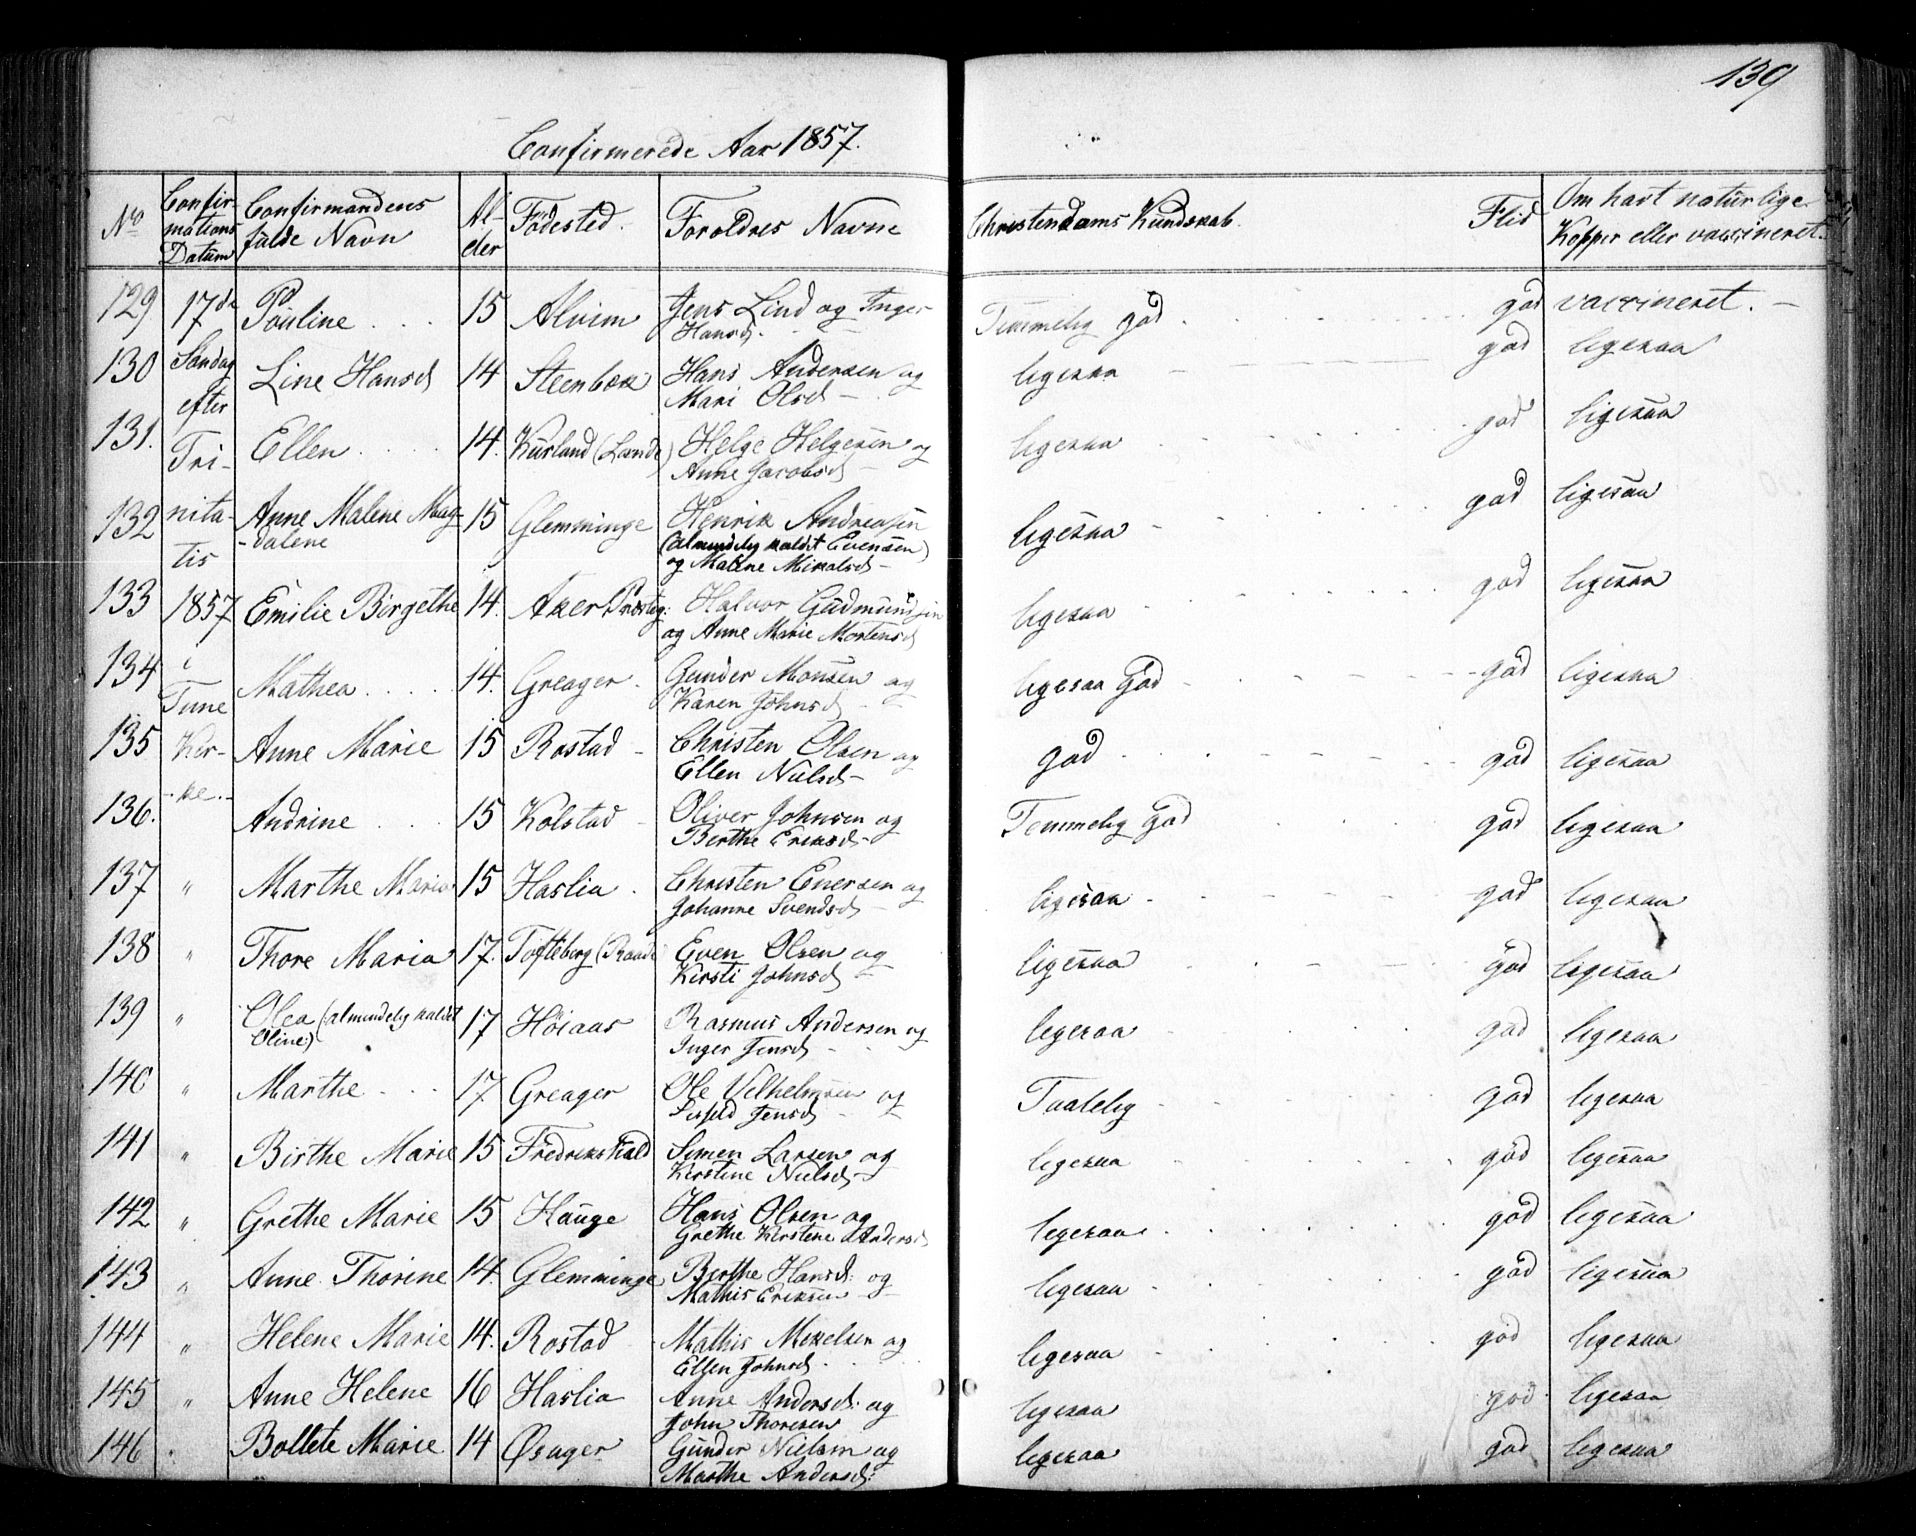 139
Confirmerede Aar 1857.
No Confirmations Datum Confirmandens fulde Navn Alder Födested. Foroldres Navne Christendoms Kundskab. Flid Om havt naturlige Kopper eller vaccineret.
129 17de Pouline 15 Alvim Jens Lind og Inger Hansd. Temmelig god god vaccineret.
130 Söndag Line Hansd 14 Steenbæk Hans Andersen og Mari Olsd ligesaa god ligesaa
131. efter Tri- Ellen 14. Kurland (Lande) Helge Helgesen og Anne Jacobsd ligesaa god ligesaa
132 nita- tis Anne Malene Mag- dalene 15 Glemminge Henrik Andreasen (almindelig kaldet Evensen) og Malene Mikalsd ligesaa god ligesaa
133 1857 Emilie Birgethe 14. Aker Præsteg: Halvor Gudmundsen og Anne Marie Mortensd ligesaa god ligesaa
134 i Tune Mathea 14. Greager Gunder Monsen og Karen Johnsd ligesaa God god ligesaa
135 Kir- Anne Marie 15 Rostad Christen Olsen og Ellen Nielsd god god ligesaa
136. -ke. Andrine 15 Kolstad Oliver Johnsen og Berthe Eriksd Temmelig God god ligesaa
137 " Marthe Maria 15 Haslia Christen Enersen og Johanne Svendsd ligesaa god ligesaa
138 " Thore Maria 17. Tofteberg (Raade) Even Olsen og Kirsti Johnsd ligesaa god ligesaa
139 " Olea (almindelig kaldet Oline) 17 Höiaas Rasmus Andersen og Inger Jensd ligesaa god ligesaa
140 " Marthe 17 Greager Ole Vilhelmsen og Jensd Taalelig god ligesaa
141 " Birthe Marie 15 Fredrikshald Simen Larsen og Kirstine Nielsd ligesaa god ligesaa
142 " Grethe Marie 15 Hauge Hans Olsen og Grethe Kirstine Andersd ligesaa god ligesaa
143 " Anne Thorine 14. Glemminge Berthe Hansd. og Mathis Eriksen ligesaa god ligesaa
144 " Helene Marie 14. Rostad Mathis Mikelsen og Ellen Johnsd ligesaa god ligesaa
145 " Anne Helene 16 Haslia Anne Andersd. og John Thoresen ligesaa god ligesaa
146 " Bollete Marie 14 Øsager Gunder Nielsen og Marthe Andersd. ligesaa god ligesaa